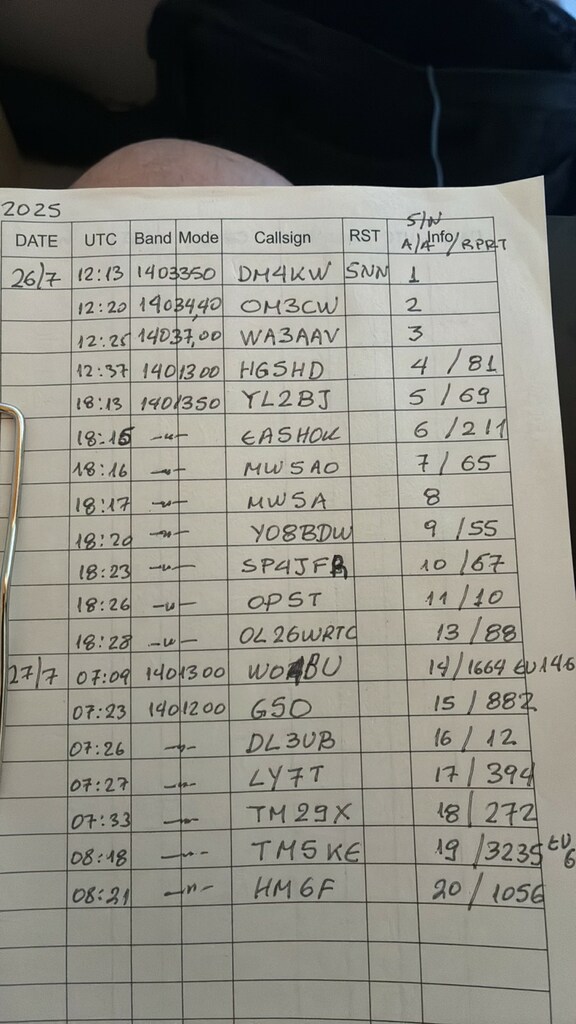 2025
S/N
DATE UTC Band Mode Callsign RST A/A Info /RPRT
26/7 12:13 1403350 DM4KW 5NN 1
12:20 1403440 OM3CW 2
12:25 14037,00 WA3AAV 3
12:37 1401300 HG5HD 4 /81
18:13 1401350 YL2BJ 5 /69
18:15 -"- EA5HOK 6 /211
18:16 -"- MW5AO 7 /65
18:17 -"- MW5A 8
18:20 -"- YO8BDW 9 /55
18:23 -"- SP4JFR 10 /67
18:26 -"- OP5T 11/10
18:28 -"- OL26WRTC 13 /88
27/7 07:09 1401300 14/1664 EU146
07:23 1401200 G5O 15 /882
07:26 -"- DL3UB 16 /12
07:27 -"- LY7T 17/ 394
07:33 -"- TM29X 18/ 272
08:18 -"- TM5KE 19 /3235 EU
6
08:21 -"- HM6F 20 / 1056